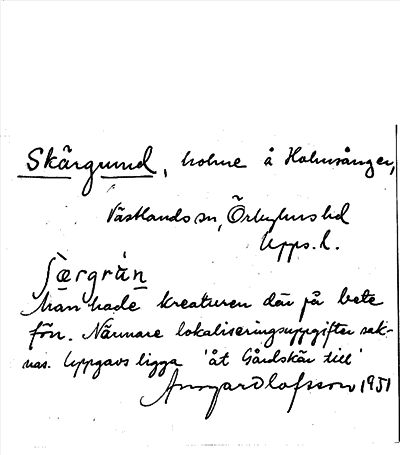 Skärgrund, holme å Holmsånger,
Västlands sn, Örbyhus hd
Upps. l.
ʃæ̀rgrún
Man hade kreaturen där på bete
förr. Närmare lokaliseringsuppgifter sak-
nas. Uppgavs ligga 'åt Gårdskär till'
Olofsson 1951